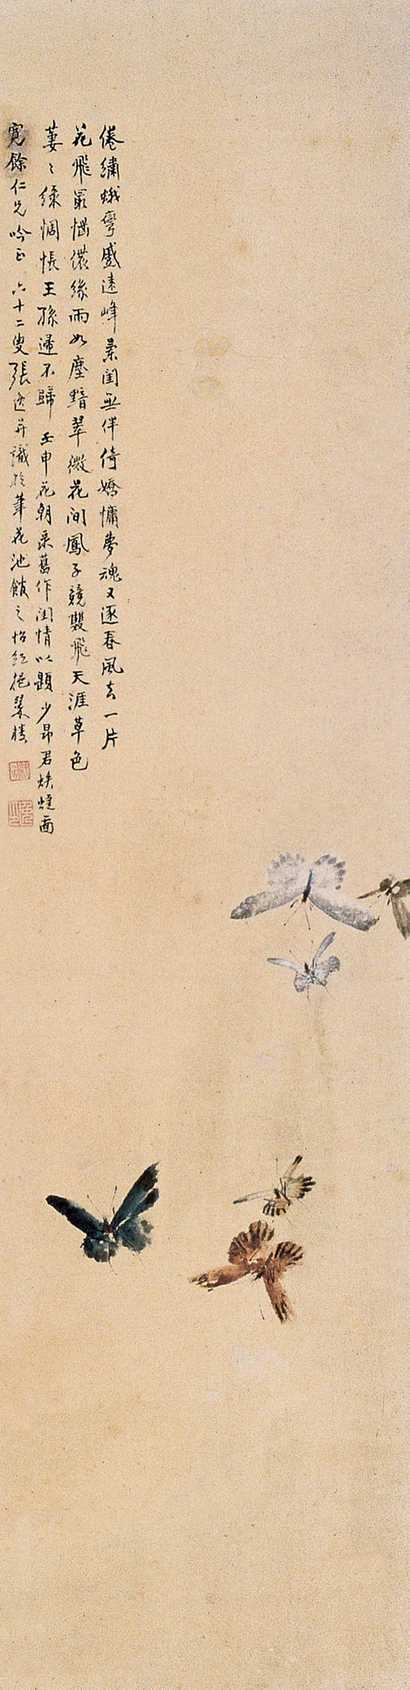 倦繡蛾彎蹙遠峰葉闺無伴倚嬌慵夢魂又逐春風去一片
花飛最惱儂緣雨如塵黯翠微花间鳳子競雙飛天涯草色
萋〻綠惆悵王孫還不歸 壬申花朝录舊作闺情以題少昂君蛺蝶画
寬餘仁兄吟正 六十二叟張逸并識於筆花池館之怡紅挹翠